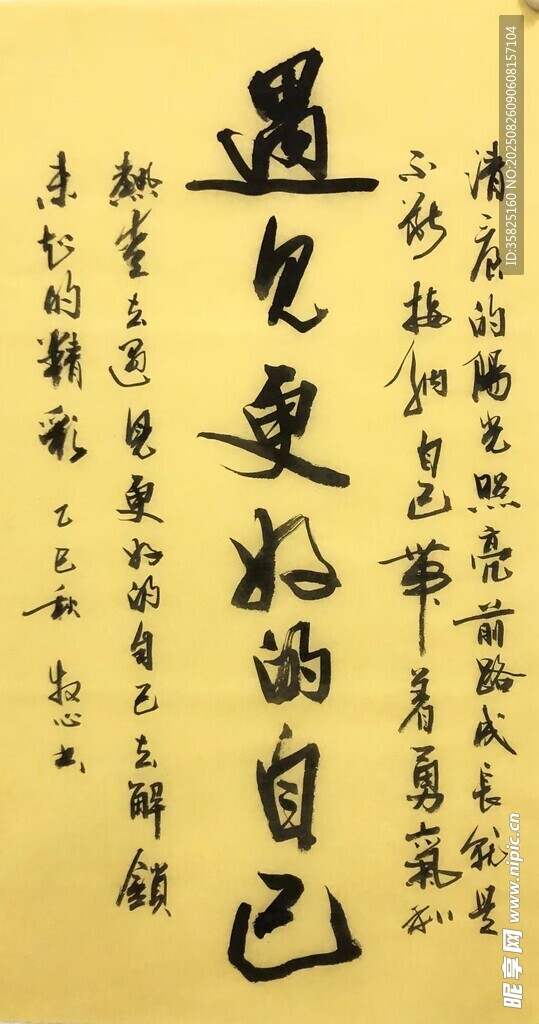 清晨的陽光照亮前路成長就是
不斷接納自己帶着勇氣和
遇見更好的自己
熱愛去遇見更好的自己去解鎖
未知的精彩 乙巳秋 牧心书
ID:35825160 NO:20250826090608157104
昵享网 www.nipic.cn